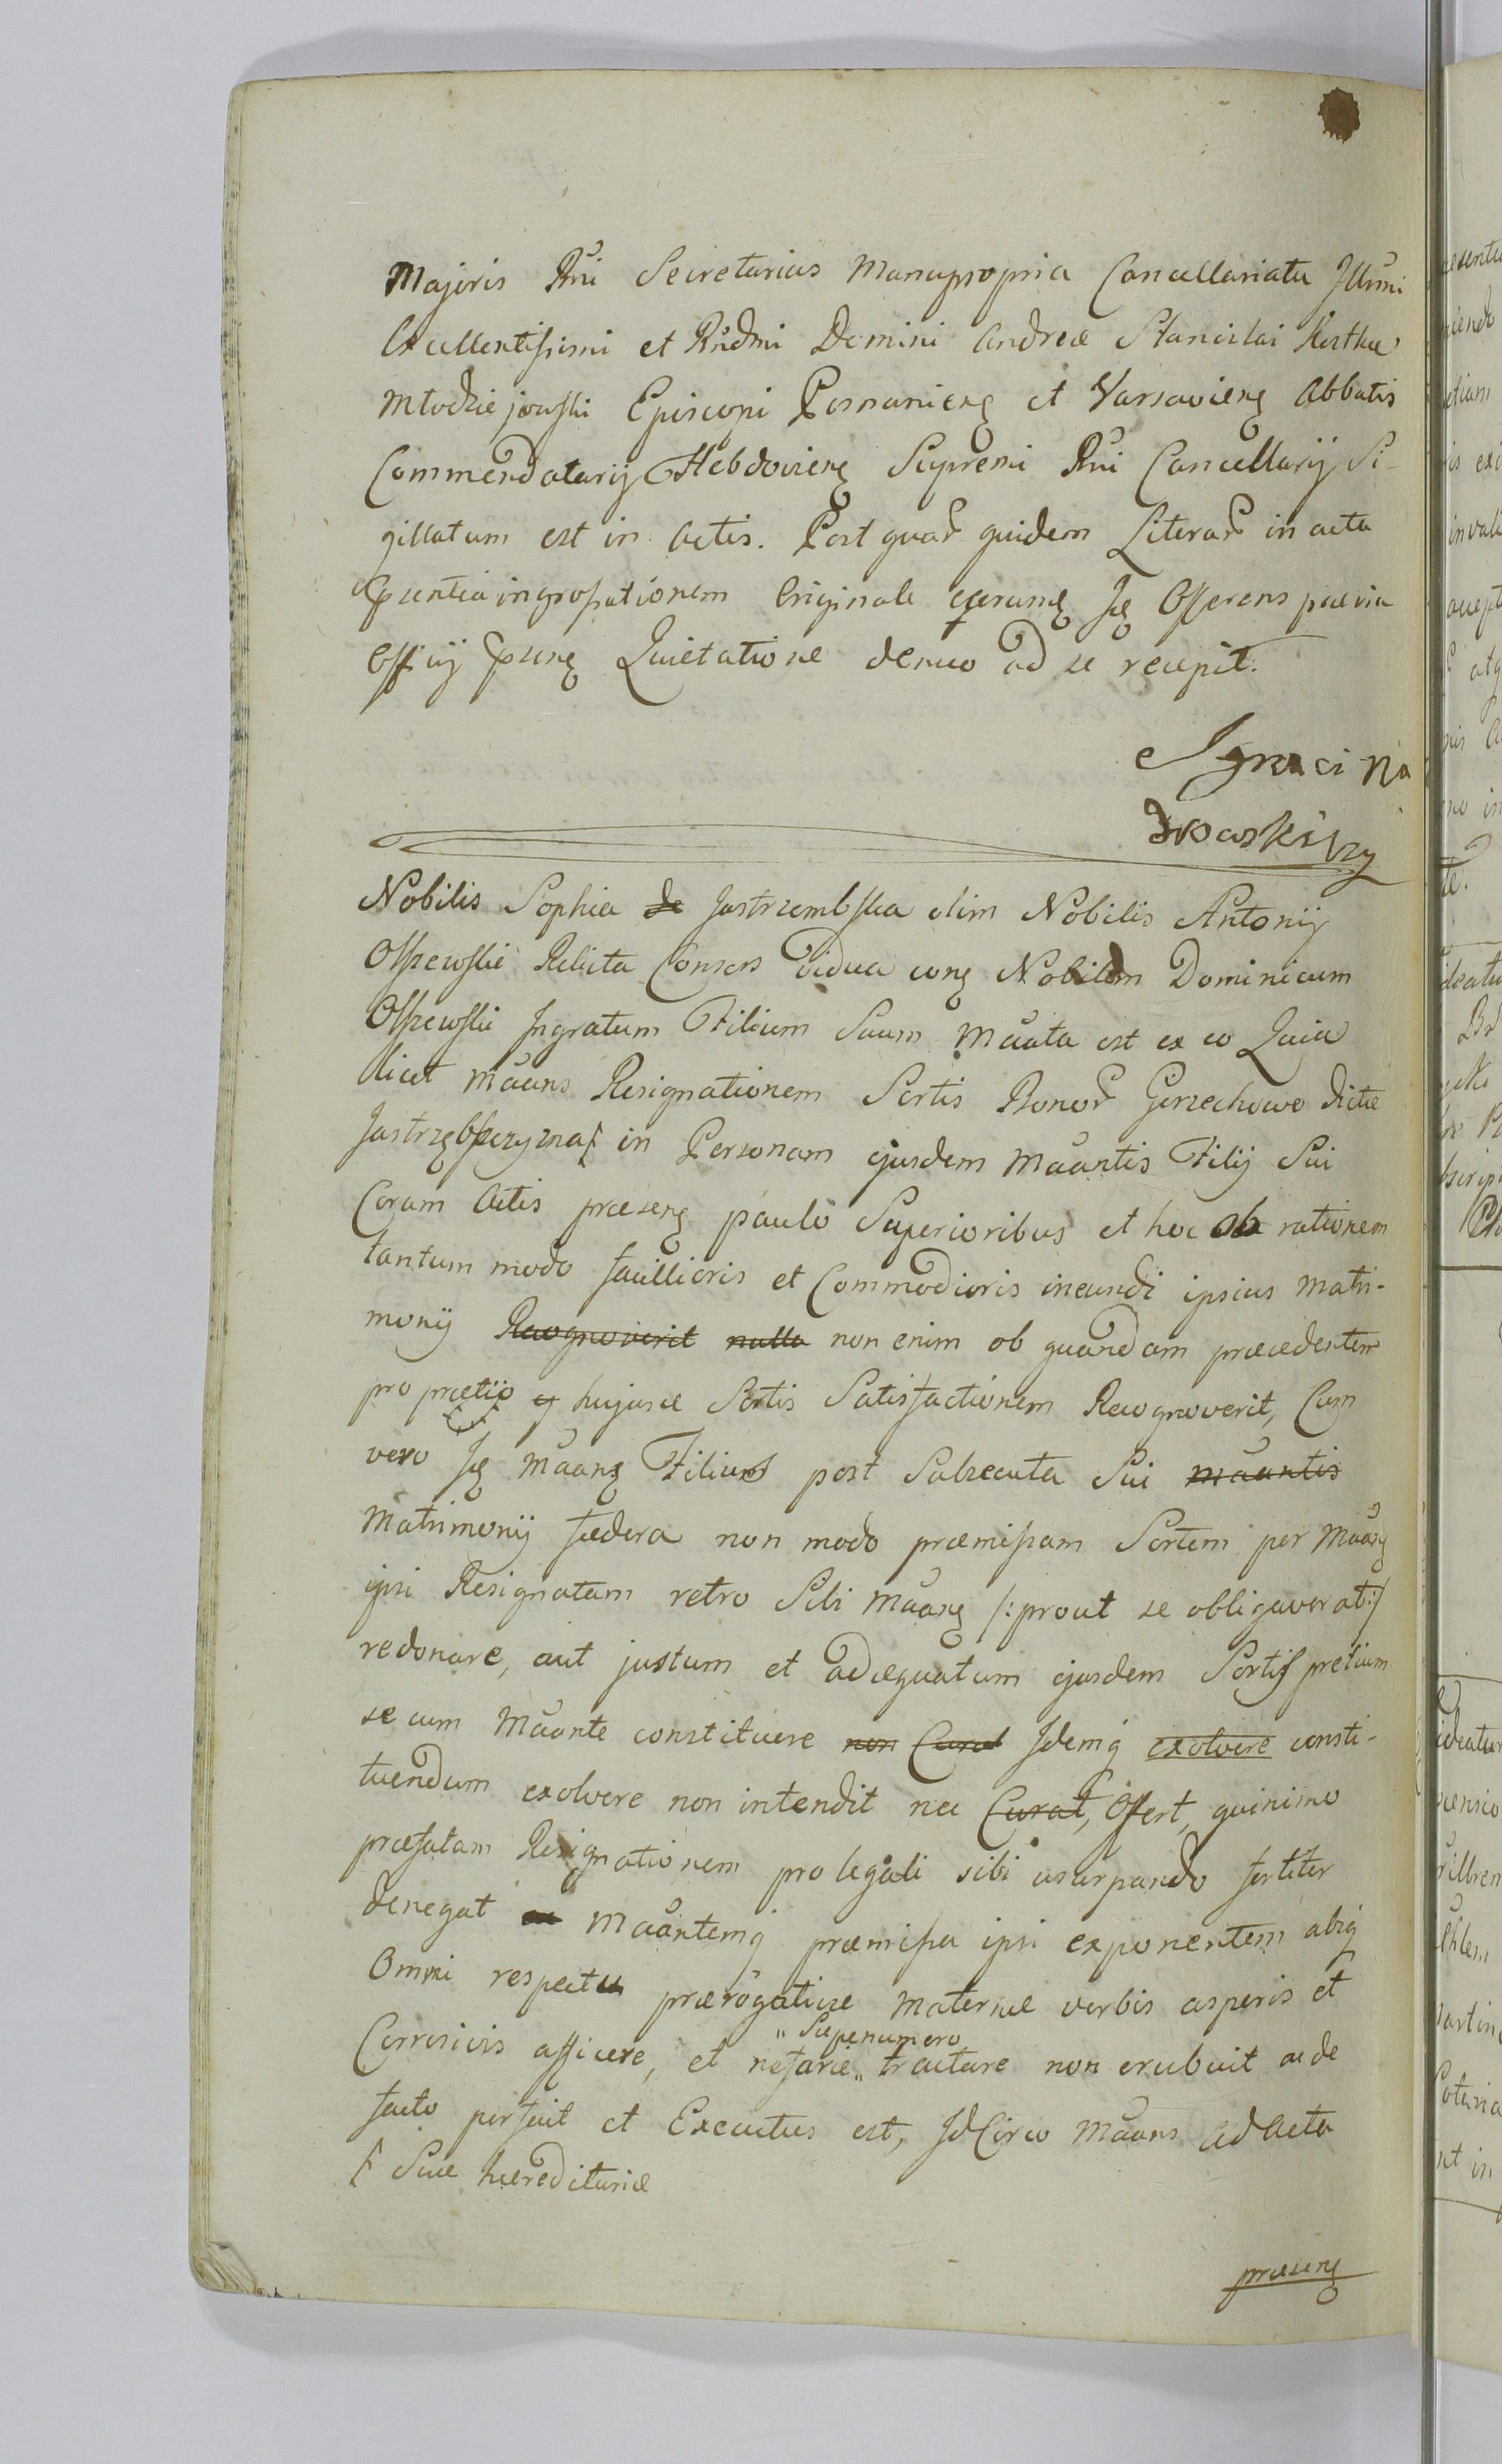 Majoris Rni Secretarius Manupropria Cancellariatu Illmi
Excellentissimi et Rndmi Domini Andreæ Stanislai Kostka
Młodziejowski Episcopi Posnanienę et Varsavienę Abbatis
Commendatarij Hebdovienę Supremi Rni Cancellarij Si-
gillatum est in Actis. Post quar quidem Literar in acta
psentia ingrossationem Originale earumę Ię Offerens prævia
Officij psenę Quietatione denuo ad se recepit.
Ignaci Na
drowski
Nobilis Sophia de Jastrzembska olim Nobilis Antonij
Olszewski Relicta Consors vidua conę Nobilem Dominicum
Olszewski Ingratum Filium Suum Maata est ex eo Quia
licet Maans Resignationem Sortis Bonor Gorzechowo dictæ
Jastrzębszczyzna/ in Personam ejusdem Maantis Filij Sui
Coram Actis præsenę paulo Superioribus et hoc ob rationem
tantum modo facillioris et Commodioris ineundi ipsius Matri-
monij Recognoverit nulla non enim ob quandam præcedentem
pro prætio ej hujusce Sortis Satisfactionem Recognoverit, Cum
vero Ię Maanę Filius post Subsecuta Sui Maantis
Matrimonij fædera non modo præmissam Sortem per Maanę
ipsi Resignatam retro Sibi Maanę /: prout se obligaverat :/
redonare, aut justum et adæquatum ejusdem Sortis pretium
se cum Maante constituere non Curat Idemq exolvere consti-
tuendum exolvere non intendit nec Curat, Offert, quinimo
præfatam Resignationem pro legali sibi usurpando fortiter
denegat ac Maantemq præmissa ipsi exponentem absq
Omni respectu prærogativæ Maternæ verbis asperis et
Corrosivis afficere, et nefarie „ Sæpenumero „ tractare non erubuit ac de
facto perfecit et Executus est, IdCirco Maans ad Acta
/ Suæ hæreditariæ
præsenę